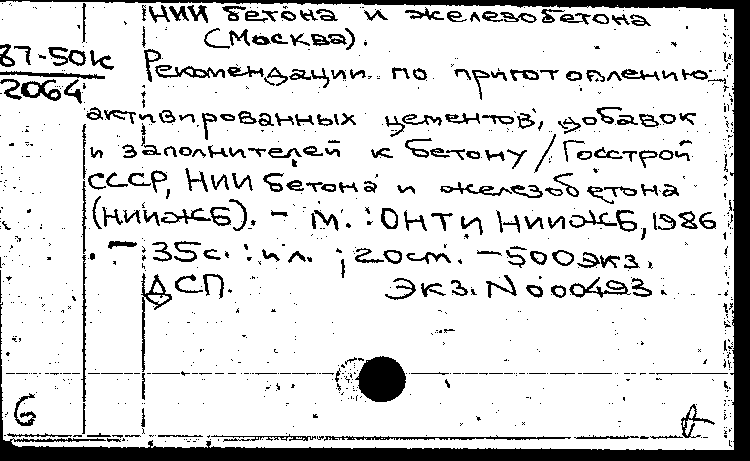 НИИ бетона и железобетона
(Москва).
87-50к
2064
Рекомендации по приготовлению
активированных цементов, добавок
и заполнителей к бетону / Госстрой
СССР, НИИ бетона и железобетона
(НИИЖБ). - М. : ОНТИ НИИЖБ, 1986
. - 35с. : ил. ; 20см. - 500экз.
ДСП. Экз. N 000493.
6